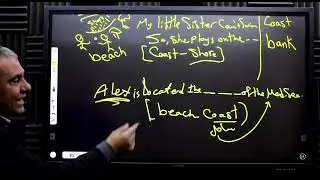 My little Sister can swim
So, she plays on the ---
[Coast - Shore]
beach
Coast
bank
Alex is Located the --- of the Med. Sea.
[beach coast]